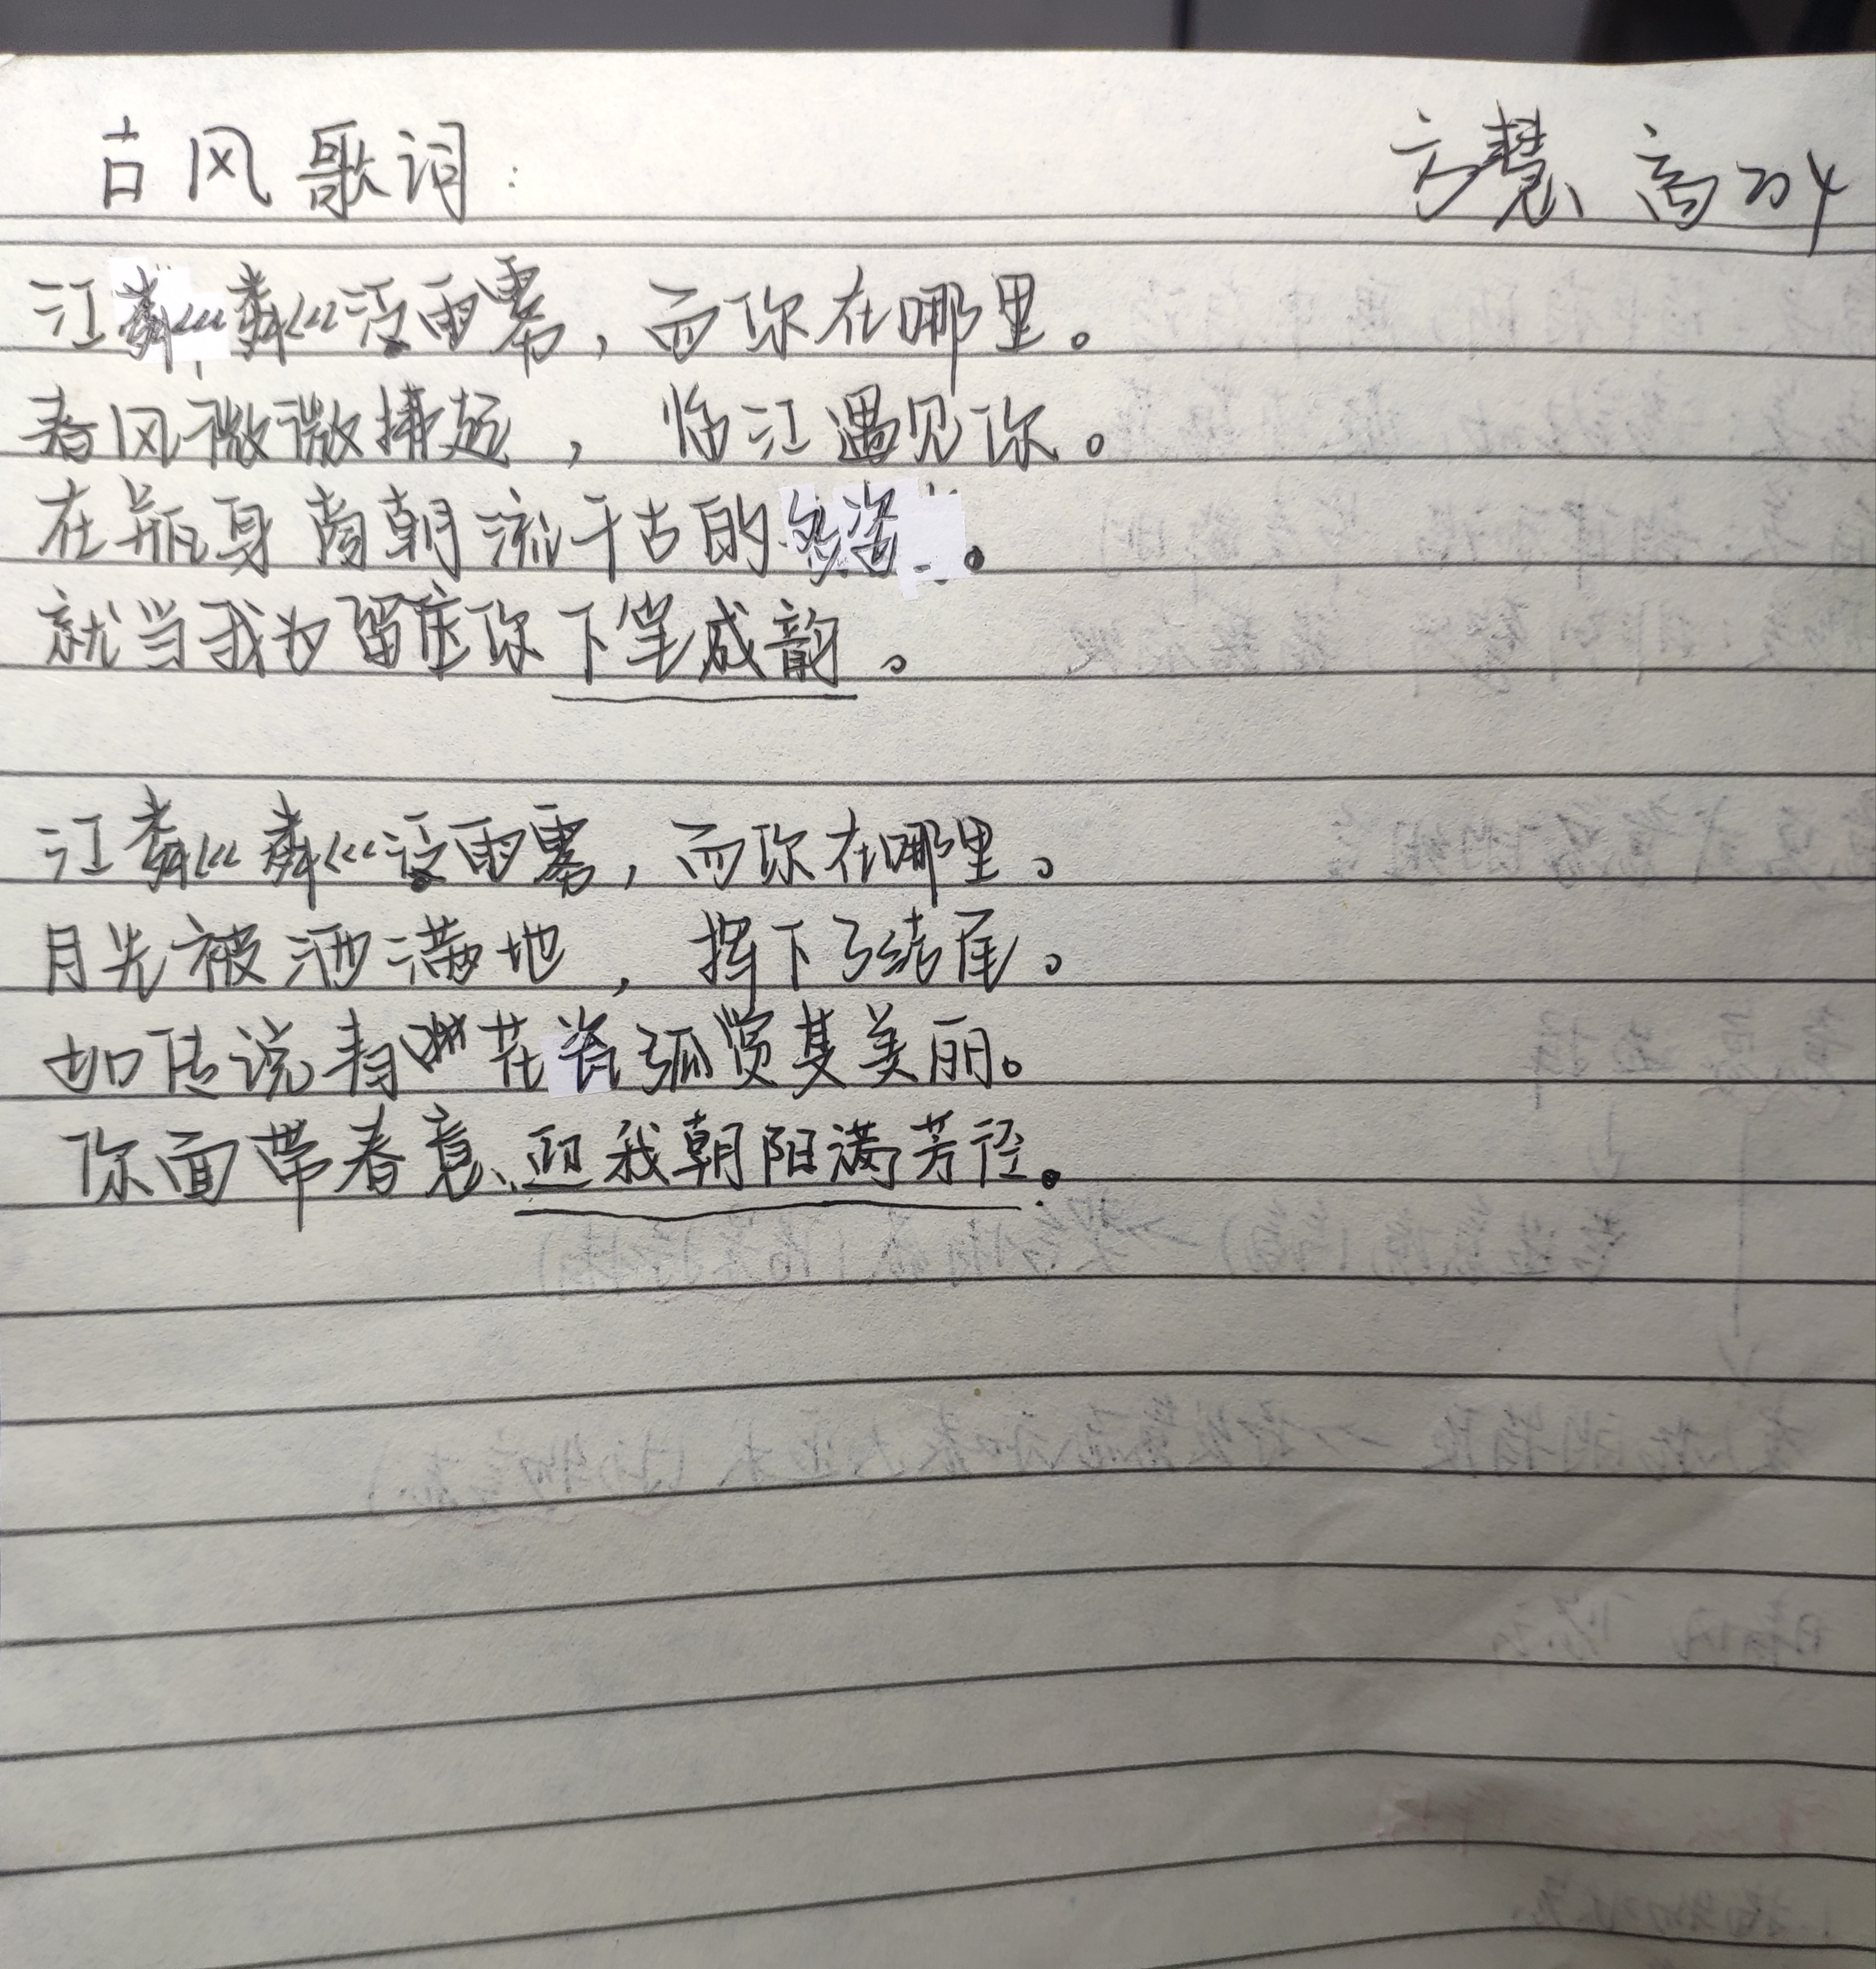 古风歌词: 方慧 高204
江粼粼泛雨雾，而你在哪里。
春风微微拂起，临江遇见你。
在瓶身前朝流千古的多姿。
就当我为留住你下笔成韵。
江粼粼泛雨雾，而你在哪里。
月光被洒满地，挥下了结尾。
如传说青花瓷孤赏其美丽。
你面带春意、迎我朝阳满芳径。